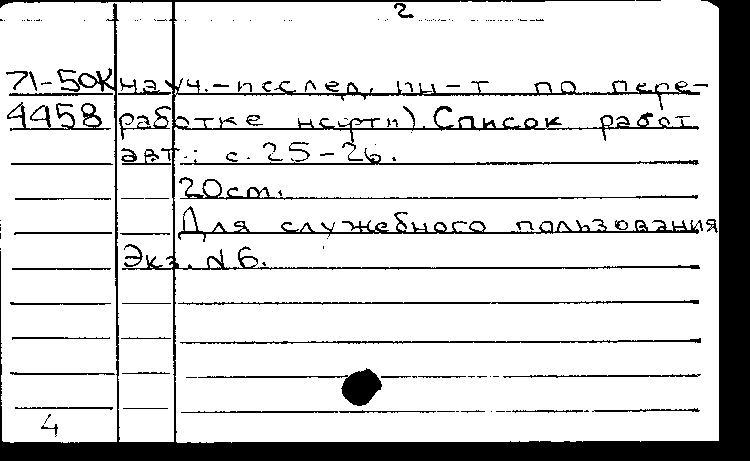 2
71-50К науч.-исслед. ин-т по пере-
4458 работке нефти). Список работ
авт.: с. 25-26.
20 см.
Для служебного пользования
Экз. N 6.
4